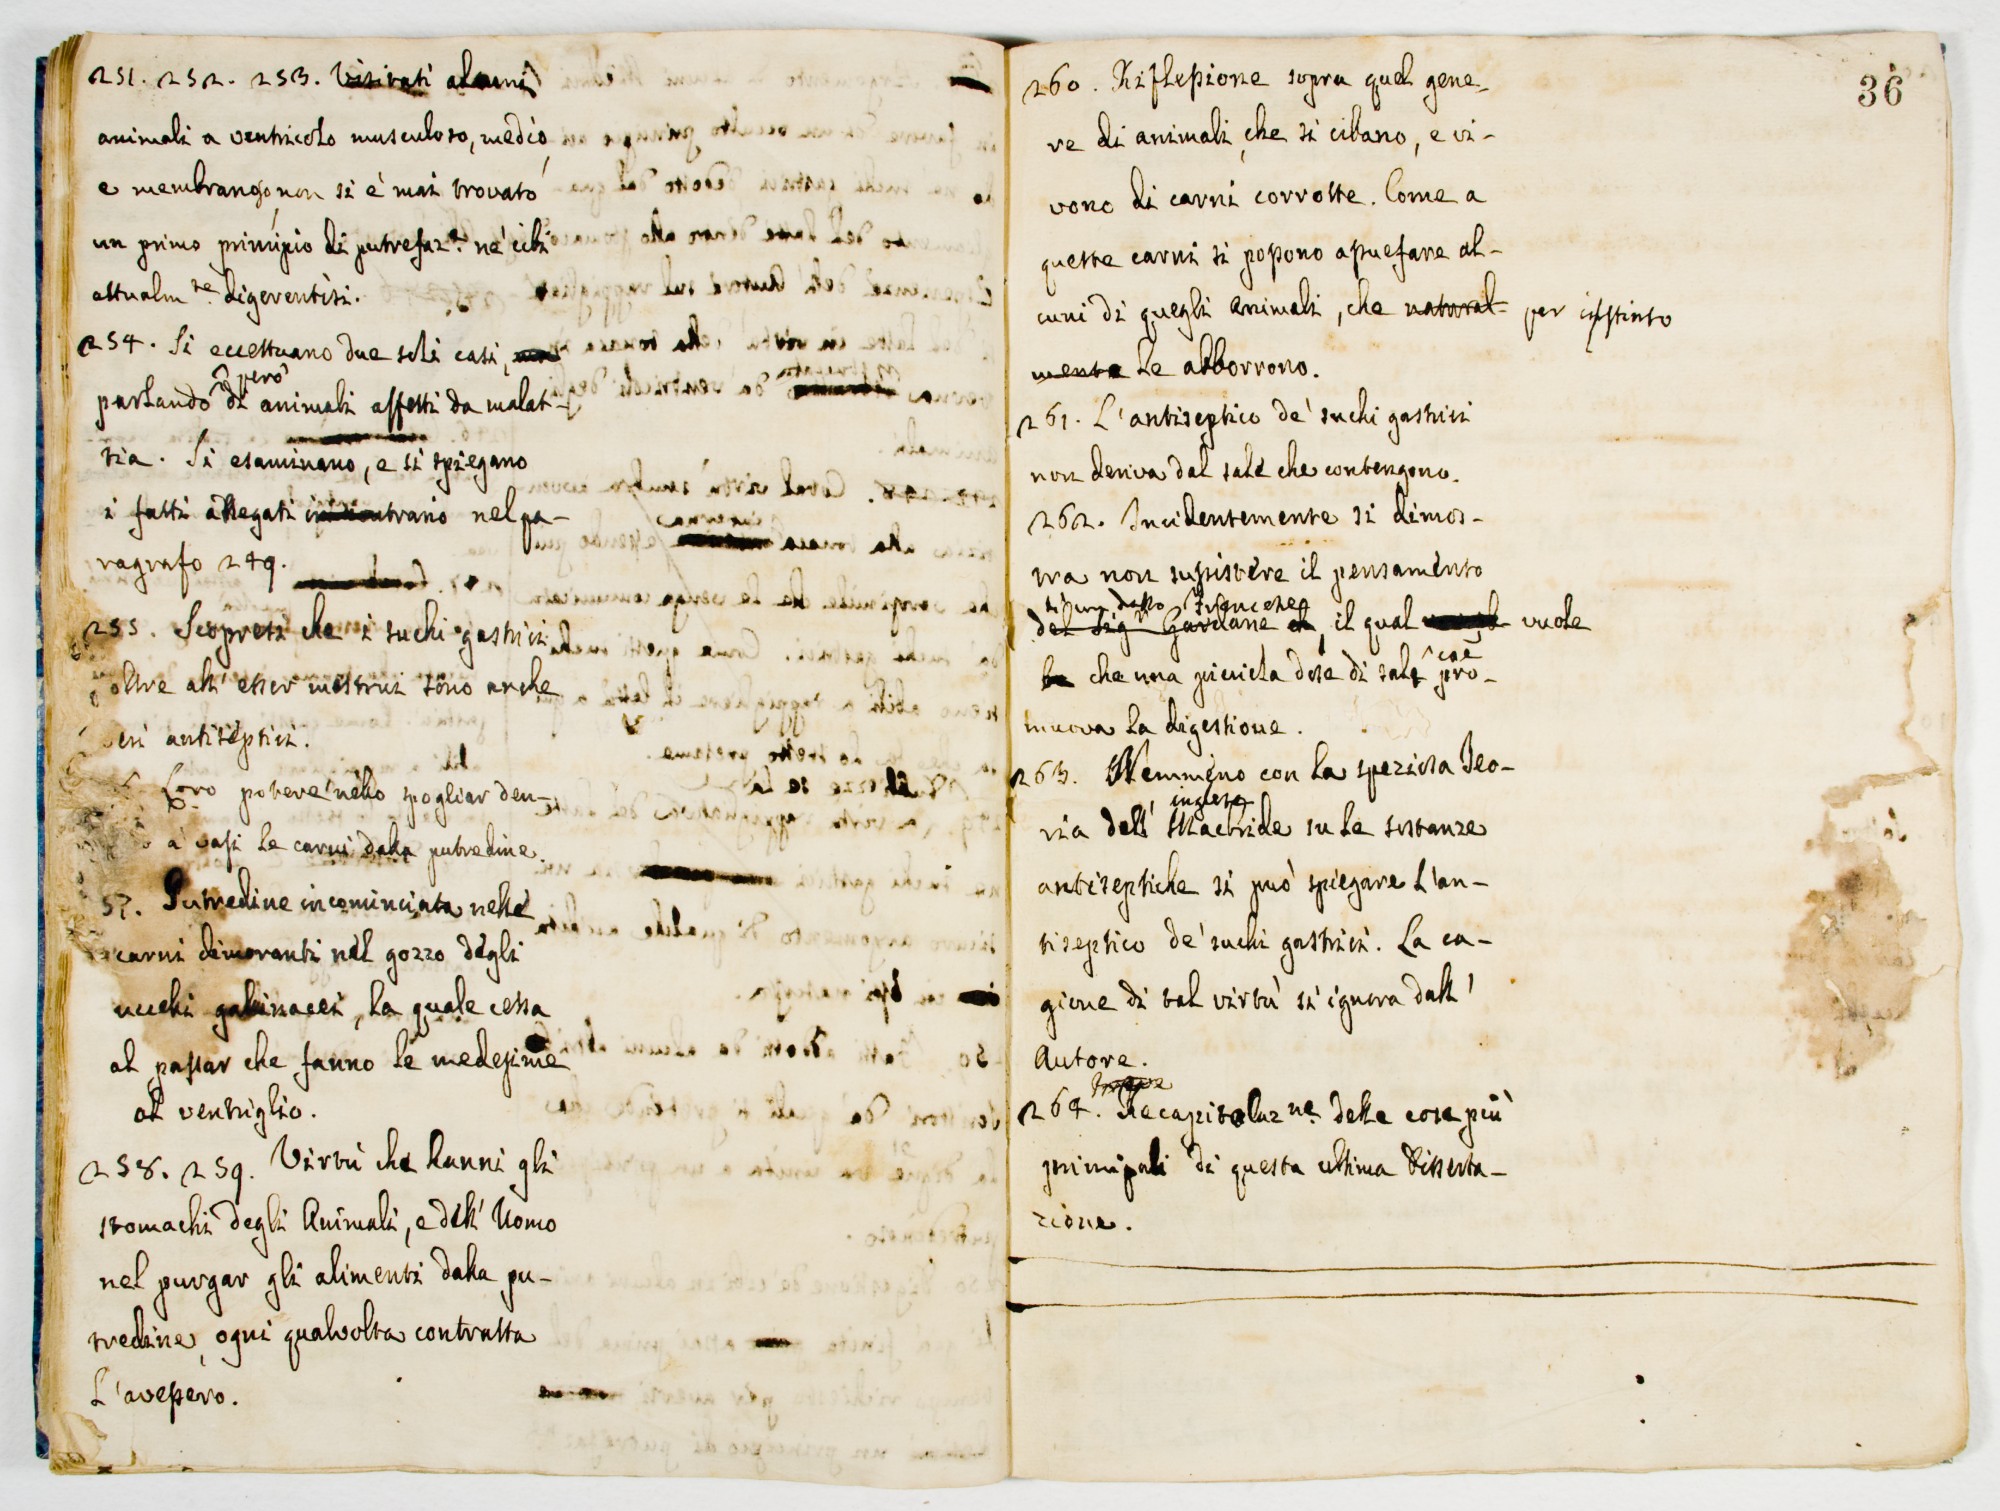 251. 252. 253. Visitati alcuni
animali a ventricolo musculoso, medio
e membranoso non si è mai trovato
un primo principio di putrefaz.e ne' cibi
attualm.te digerentisi.
254. Si eccettuano due soli casi,
però
parlando di animali affetti da malat-
tia. Si esaminano, e si spiegano
i fatti allegati in contrario nel pa-
ragrafo 249.
255. Scopresi che i suchi gastrici
oltre all' esser mestrui sono anche
veri antiseptici.
6. Loro potere nello spogliar den-
o a' vasi le carni dalla putredine.
57. Putredine incominciata nelle
carni dimoranti nel gozzo degli
uccelli gallinacei, la quale cessa
al passar che fanno le medesime
al ventriglio.
258. 259. Virtù che hanni gli
stomachi degli Animali, e dell' Uomo
nel purgar gli alimenti dalla pu-
tredine, ogni qualvolta contratta
L'avessero.
36
260. Riflessione sopra quel gene-
re di animali, che si cibano, e vi-
vono di carni corrotte. Come a
queste carni si possono assuefare al-
cuni di quegli animali, che natural- per istinto
mente le abborrono.
261. L'antiseptico de' suchi gastrici
non deriva dal sale che contengono.
262. Incidentemente si dimos-
tra non sussistere il pensamento
Francese
del Sig.r Gardane, il qual vuole
che una picciola dose di sale pro-
muova la digestione.
263. Nemmeno con la speziosa Teo-
inglese
ria dell' Macbride su le sostanze
antiseptiche si può spiegare l'an-
tiseptico de' suchi gastrici. La ca-
gione di tal virtù si ignora dall'
Autore.
264. Recapitolaz.ne delle cose più
principali di questa ultima Disserta-
zione.